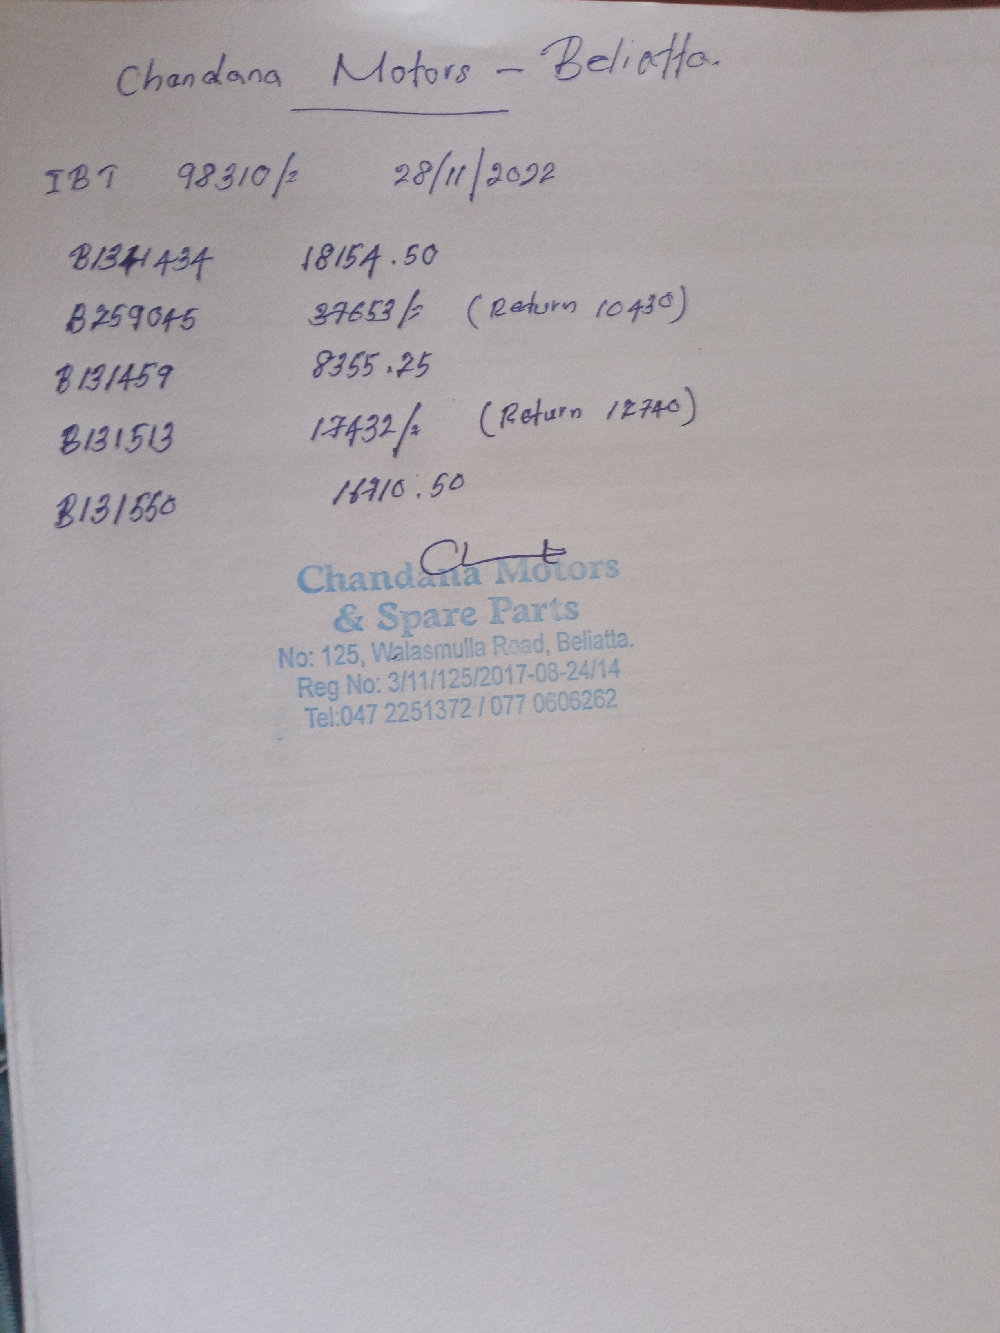 Chandana Motors - Beliatta.
IBT 98310/= 28/11/2022
B131434 18154.50
B259045 37653/= (Return 10430)
B131459 8355.25
B131513 17432/= (Return 12740)
B131550 16710.50
Chandana Motors
& Spare Parts
No: 125, Walasmulla Road, Beliatta.
Reg No: 3/11/125/2017-08-24/14
Tel:047 2251372 / 077 0606262